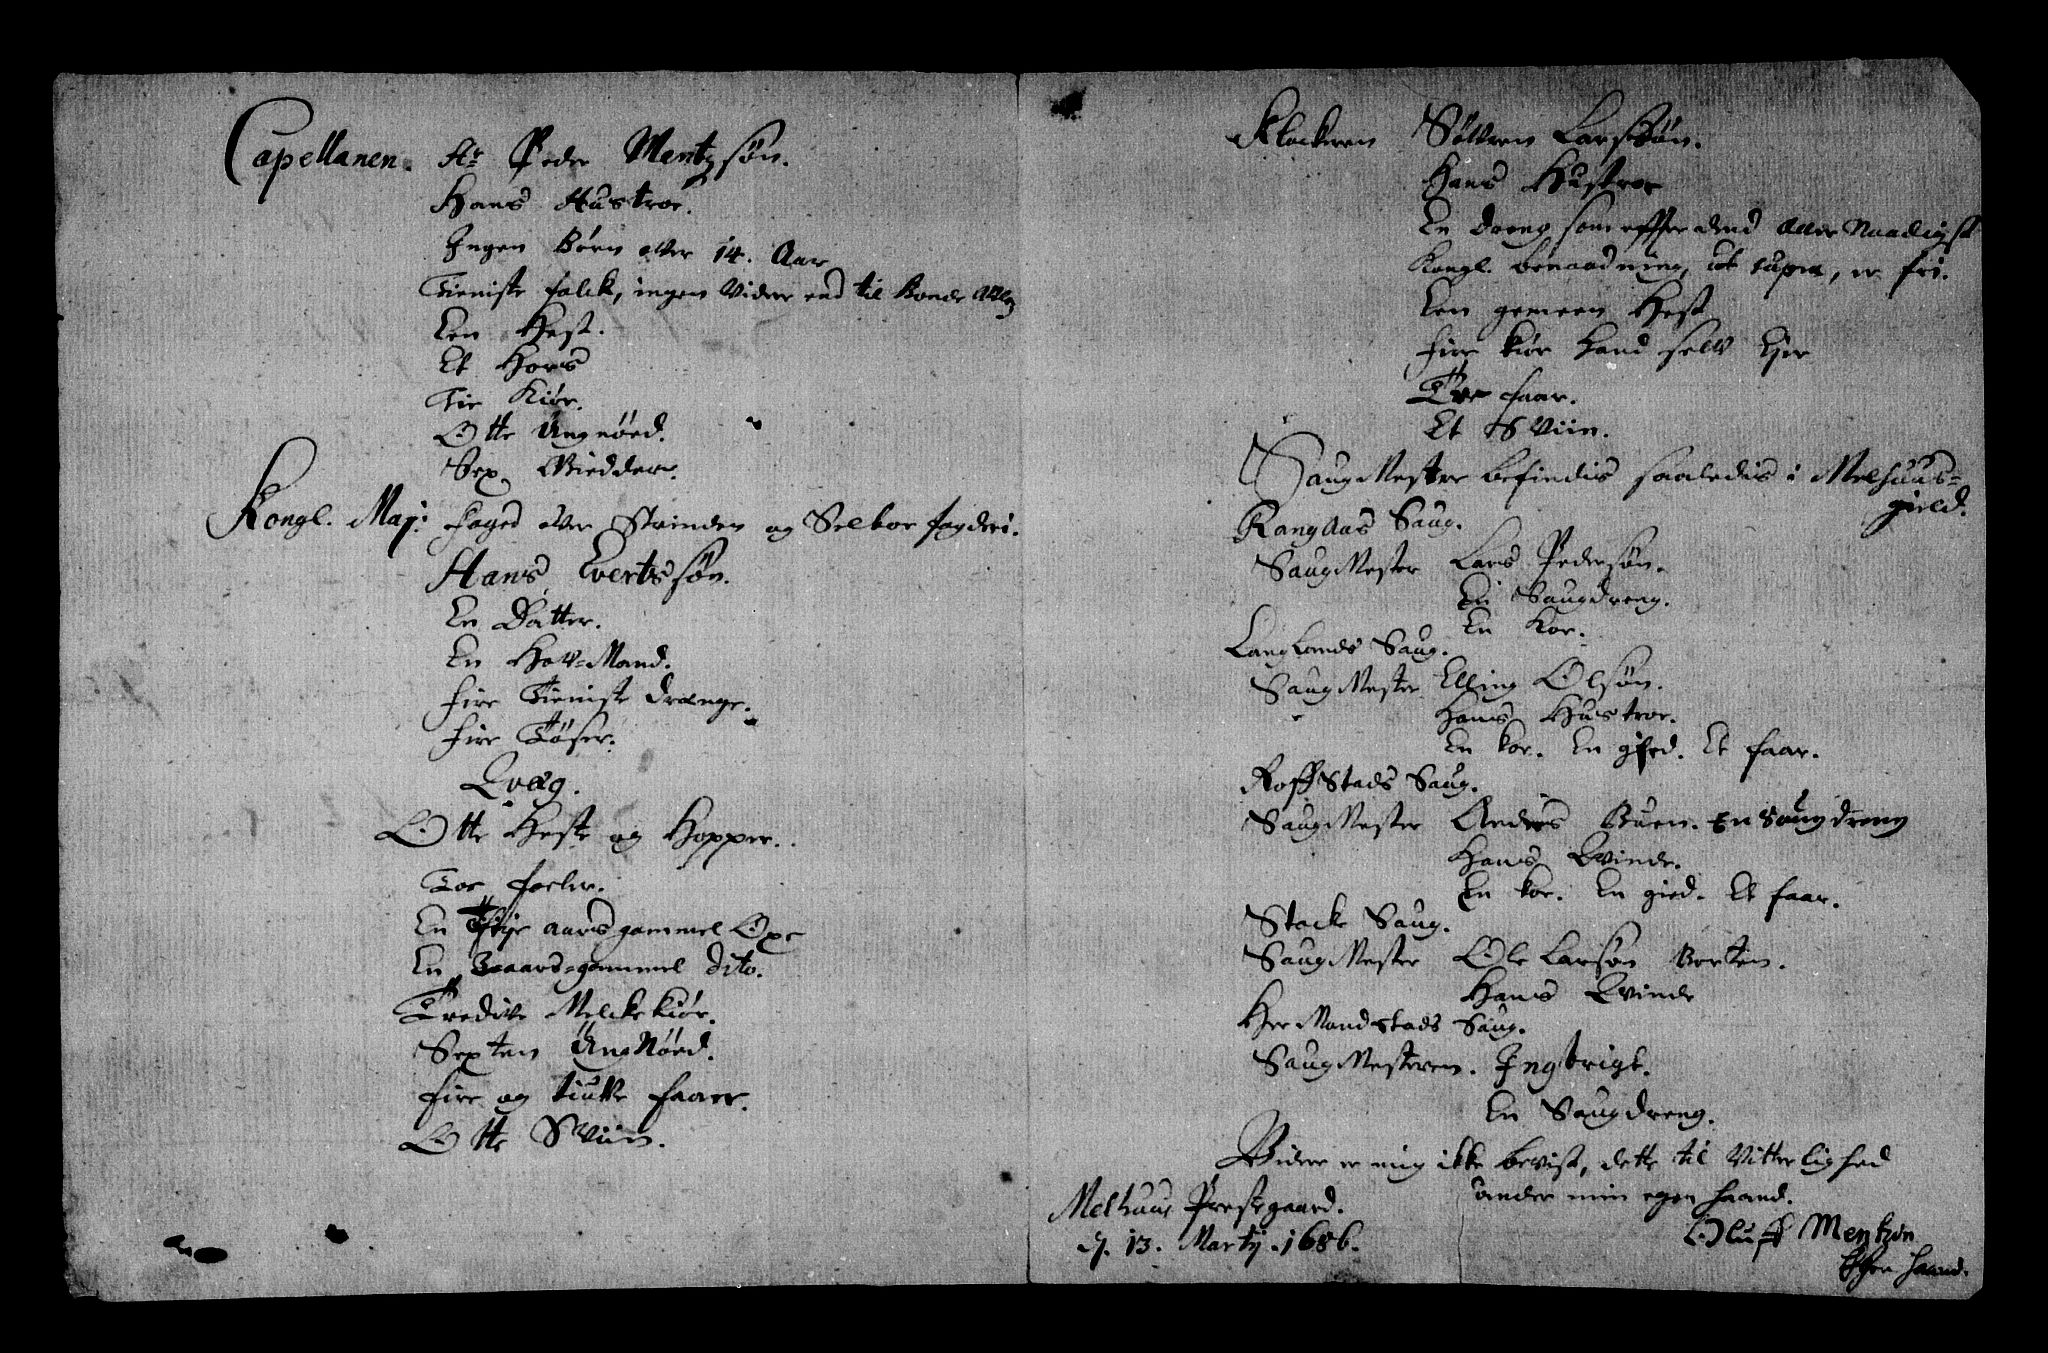 Capellanen. Hr Peder Mentzsøn.
Hans Hustroe.
Ingen Børn over 14. Aar
Tieniste folck, ingen Vidre end til Bonde
Een Hest.
Et Hors
Tie Kiør.
Otte Ungnöed.
Sex Bedder.
Kongl. Maj: foged över Strinden og Selboe fogderi.
Hans Evertssøn.
En Datter.
En Hov=Mand.
fire Tieniste drænge.
fire Töser.
Qvæg.
Otte Heste og Hopper.
Toe foeler.
En aars gammel Oxe
En aars=gammel dito.
Tredive Melckekiör.
Sexten UngNöed.
fire og tiufve faaer.
Otte Sviin.
Klockeren Søfren Larssøn.
Hans Hustroe
En dreng som effter dend Aller Naadigst
Kongl. benaadning, ut supra, er fri.
Een gemeen Hest
fire kiør hand selv Ejer
Tre faar.
Et Sviin.
SaugMestre befindis saaledis i Melhuus=
gield.
Rangaas Saug.
SaugMester Lars Pedersøn.
En Saugdreng.
En Koe.
Langlands Saug.
SaugMester Elling Olsøn.
Hans Hustroe.
En koe. En gied. Et faar.
RoffStads Saug.
SaugMester Anders Buen. En Saugdreng
Hans Qvinde.
En koe. En gied. Et faar.
Stocke Saug.
SaugMester Ole Larsøn Borten.
Hans Qvinde
HerMandstads Saug.
SaugMesteren. Ingbrigt.
En Saugdreng.
Vidre er mig ikke bevist, dette til Vitterlighed
under min egen haand.
Melhuus Prestegaard.
d. 13. Martij. 1686.
Oluff Mentzøn
Egen haand.